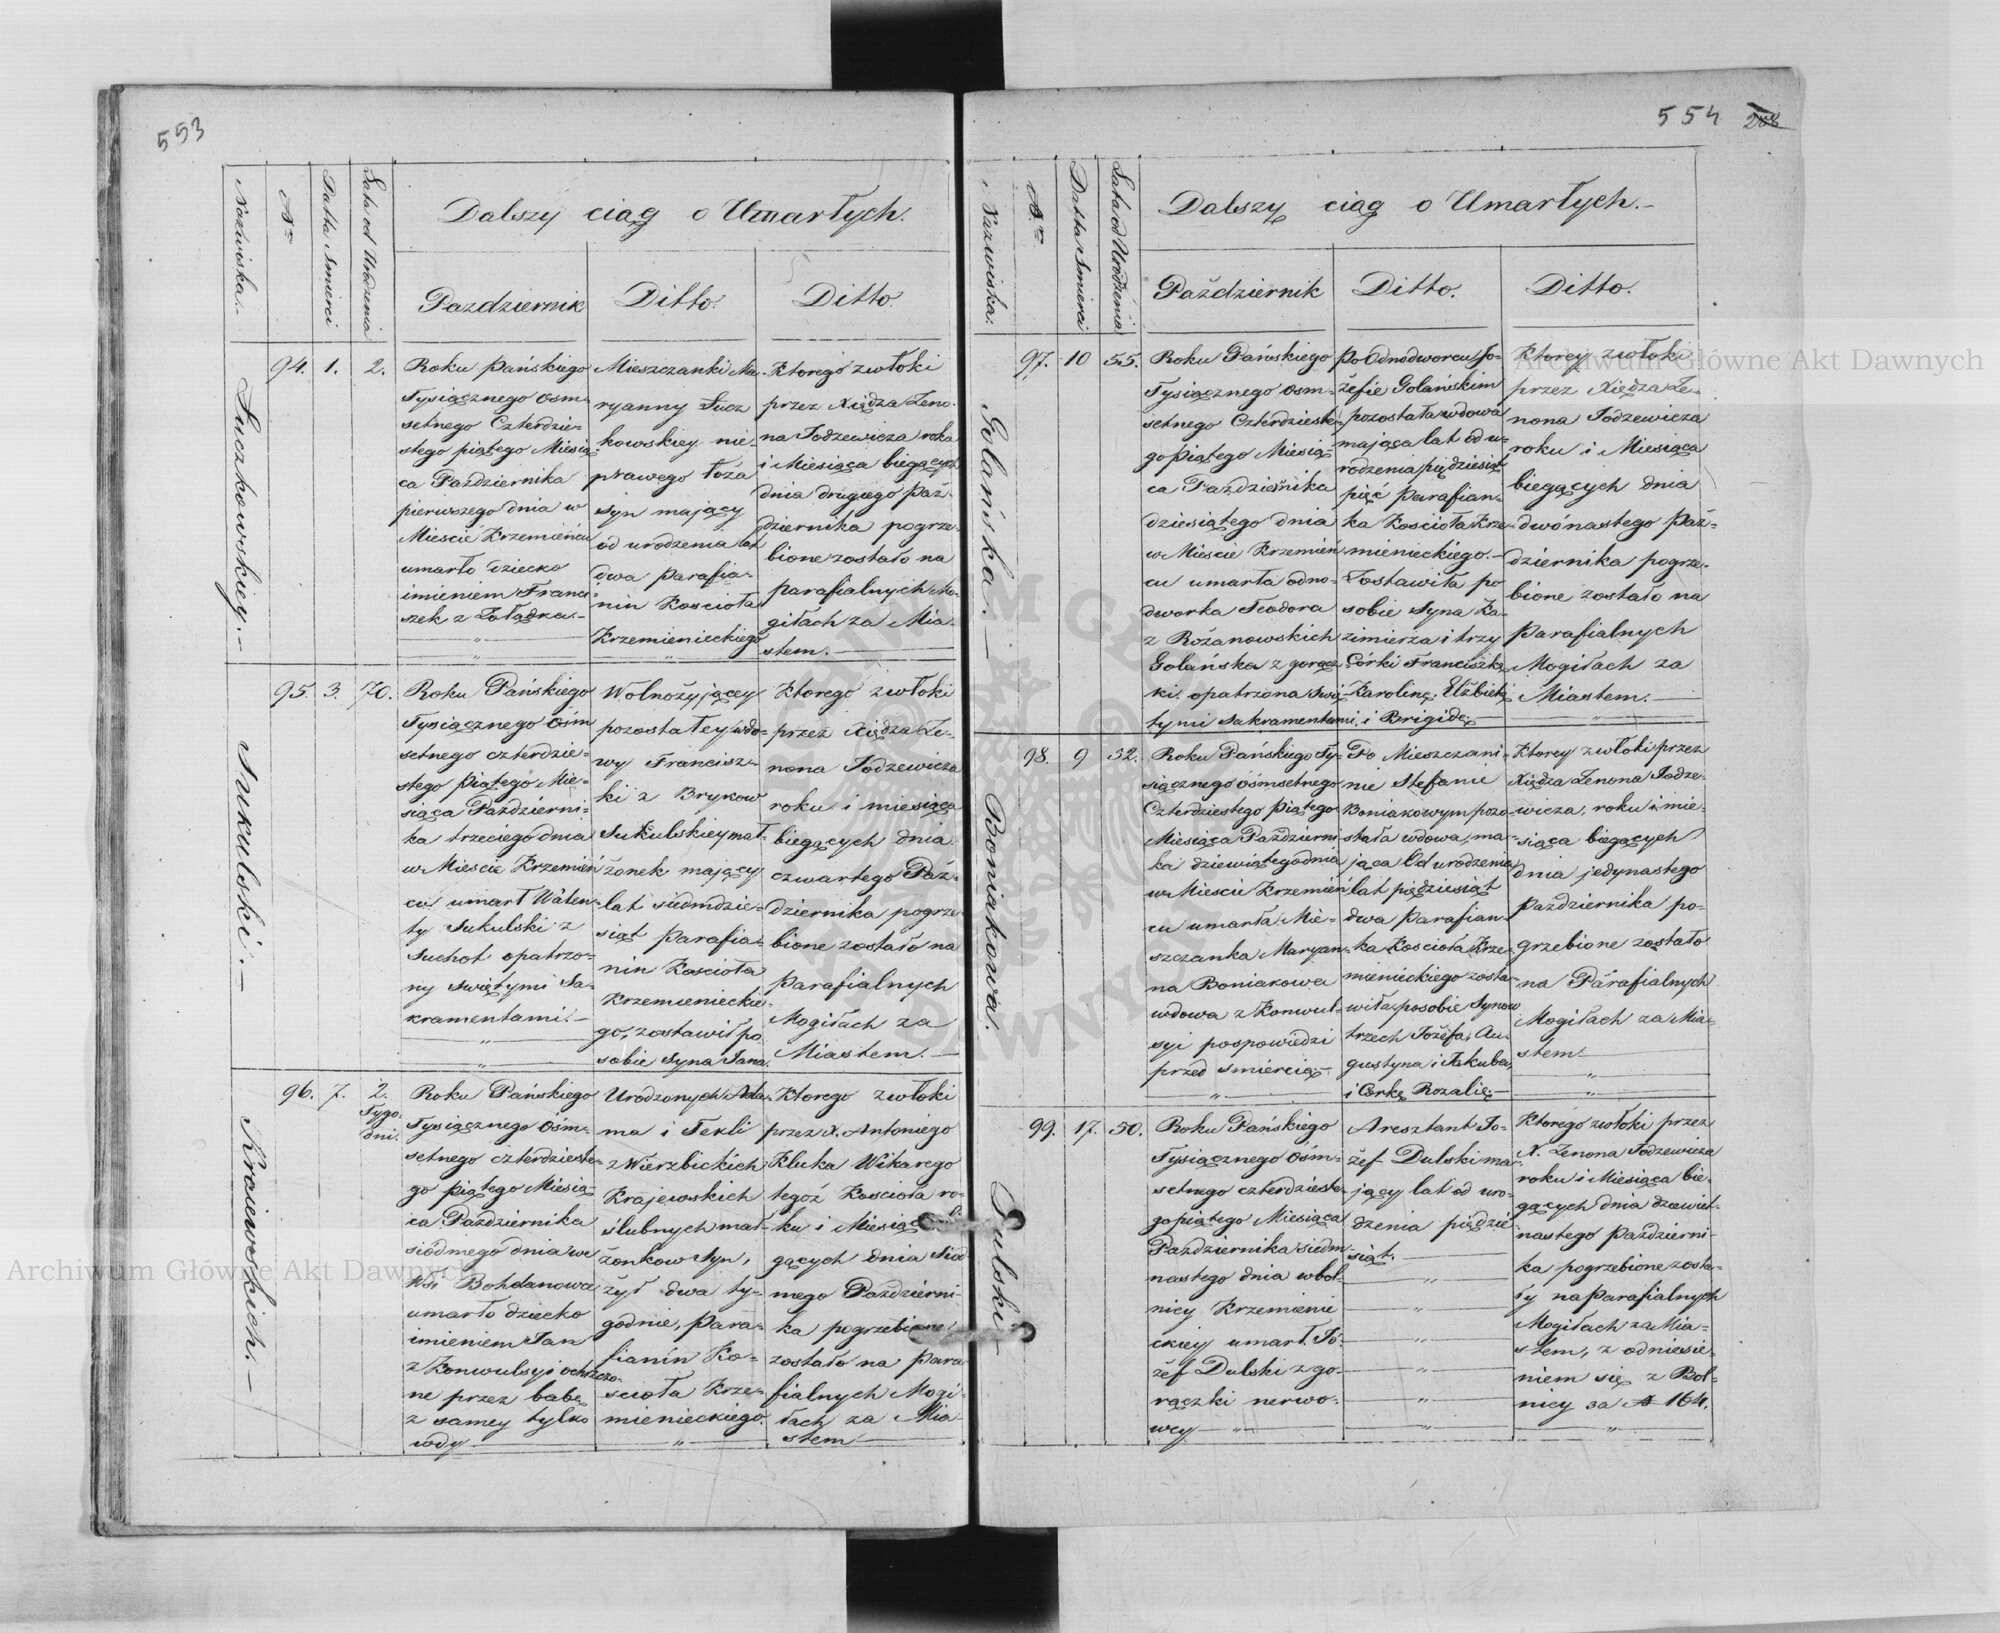 553
Nazwiska.
Nro
Datta Smierci
Lata od Urodzenia
Dalszy ciąg o Umarłych.
Pazdziernik
Ditto.
Ditto.
Suczkowskiey.
94. 1. 2.
Roku Pańskiego
Tysiącznego Osm-
setnego Czterdzie-
stego piątego Miesią-
ca Października
pierwszego dnia w
Mieście Krzemieńcu
umarło dziecko
imieniem Franci-
szek z Żołądka.
Mieszczanki Ma-
ryanny Sucz
kowskiey nie
prawego łoża
syn mający
od urodzenia lat
dwa Parafia-
nin Kościoła
Krzemienieckiego
Ktorego zwłoki
przez Xiędza Zeno-
na Jodzewicza roku
i Miesiąca biegących
dnia drugiego Paź-
dziernika pogrze-
bione zostało na
parafialnych Mo-
giłach za Mia-
stem.
Sukulski.
95. 3. 70.
Roku Pańskiego
Tysiącznego Ośm
setnego czterdzie-
stego Piątego Mie-
siąca Październi-
ka trzeciego dnia
w Mieście Krzemień
cu umarł Walen-
ty Sukulski z
Suchot opatrzo-
ny Swiętymi Sa-
kramentami.
Wolnożyjącey
pozostałey wdo-
wy Francisz-
ki z Brykow
Sukulskiey mał-
żonek mający
lat siedmdzie-
siąt Parafia-
nin Kościoła
Krzemienieckie-
go, zostawił po
sobie Syna Jana.
Ktorego zwłoki
przez Xiędza Ze-
nona Jodzewicza
roku i miesiąca
biegących dnia
czwartego Paź-
dziernika pogrze
bione zostało na
Parafialnych
Mogiłach za
Miastem.
Kraiewskich.
96. 7. 2.
Tygo-
dni.
Roku Pańskiego
Tysiącznego Ośm-
setnego czterdzieste-
go piątego Miesią-
ca Października
siódmego dnia we
Wsi Bohdanowce
umarło dziecko
imieniem Jan
z Konwulsyi ochrzczo-
ne przez babę
z samey tylko
wody
Urodzonych Ada-
ma i Tekli
z Wierzbickich
Krajewskich
ślubnych mał-
żonkow Syn,
żył dwa ty-
godnie, Para-
fianin Ko-
ścioła Krze-
mienieckiego.
Ktorego zwłoki
przez X. Antoniego
Kluka Wikarego
tegoż Kościoła ro-
ku i Miesiąca bie-
gących dnia Siod
mego Październi-
ka pogrzebione
zostało na Para
fialnych Mogi-
łach za Mia-
stem
554 208
Nazwiska.
Nro
Datta Smierci
Lata od Urodzenia
Dalszy ciąg o Umarłych.
Październik
Ditto.
Ditto.
Golańska.
97. 10 55.
Roku Pańskiego
Tysiącznego Osm-
setnego Czterdzieste-
go Piątego Miesią-
ca Października
dziesiątego dnia
w Mieście Krzemień
cu umarła odno-
dworka Teodora
z Rożanowskich
Golańska z gorącz
ki opatrzona Swię-
tymi Sakramentami.
Po Odnodworcu Jo-
żefie Golańskim
pozostała wdowa
mająca lat od u-
rodzenia pięćdziesiąt
pięć Parafian-
ka Kościoła Krze-
mienieckiego.
Zostawiła po
sobie Syna Ka-
zimierza i trzy
Córki Franciszkę
Karolinę, Elżbietę
i Brigidę
Ktorey zwłoki
przez Xiędza Ze-
nona Jodzewicza
roku i Miesiąca
biegących dnia
dwónastego Paź-
dziernika pogrze-
bione zostało na
Parafialnych
Mogiłach za
Miastem.
Boniakowa.
98. 9 52.
Roku Pańskiego Ty-
siącznego Ośmsetnego
Czterdziestego Piątego
Miesiąca Październi-
ka dziewiątego dnia
w Mieście Krzemień
cu umarła Mie-
szczanka Maryan-
na Boniakowa
wdowa z Konwul-
syi po spowiedzi
przed Smiercią
Po Mieszczani-
nie Stefanie
Boniakowym pozo-
stała wdowa, ma-
jąca Od urodzenia
lat pięćdziesiąt
dwa Parafian-
ka Kościoła Krze-
mienieckiego zosta-
wiła po sobie Synow
trzech Jożefa, Au-
gustyna i Jakuba,
i Corkę Rozalię
Ktorey zwłoki przez
Xiędza Zenona Jodze-
wicza, roku i mie-
siąca biegących
dnia jedynastego
Października po-
grzebione zostało
na Parafialnych
Mogiłach za Mia-
stem
Dulski
99. 17. 50.
Roku Pańskiego
Tysiącznego Ośm-
setnego czterdzieste-
go piątego Miesiąca
Października siedm
nastego dnia w bol-
nicy Krzemienie
ckiey umarł Jó-
żef Dulski z go-
rączki nerwo-
wey
Aresztant Jo-
żef Dulski ma-
jący lat od uro-
dzenia pięćdzie
siąt.
Ktorego zwłoki przez
X. Zenona Jodzewicza
roku i Miesiąca bie-
gących dnia dzewięt-
nastego Październi-
ka pogrzebione zosta-
ły na Parafialnych
Mogiłach za Mia-
stem, z odniesie-
niem się z Bol-
nicy za N 164.
Archiwum Główne Akt Dawnych
Archiwum Główne Akt Dawnych